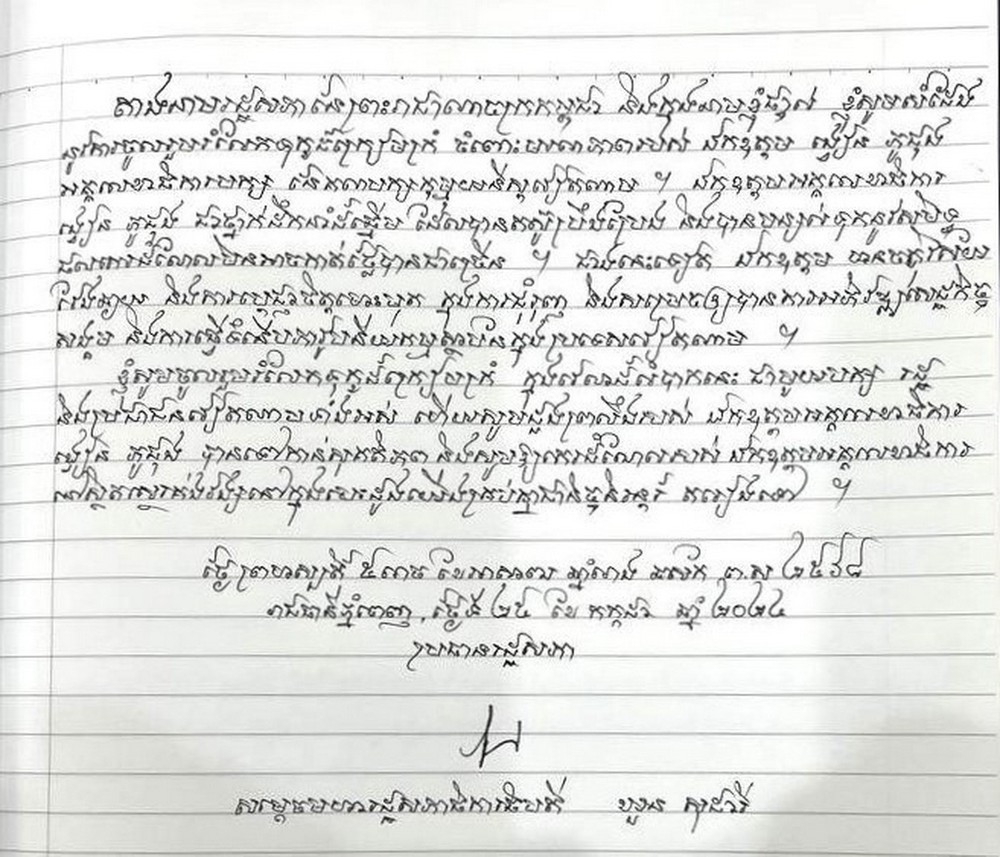 តាងនាមរដ្ឋសភានៃព្រះរាជាណាចក្រកម្ពុជា និងក្នុងនាមខ្ញុំផ្ទាល់ ខ្ញុំសូមសំដែង
នូវការចូលរួមរំលែកទុក្ខដ៏ក្រៀមក្រំ ចំពោះមរណភាពរបស់ ឯកឧត្តម ង្វៀន ភូជុង
អគ្គលេខាធិការបក្ស នៃគណបក្សកុម្មុយនីស្តវៀតណាម ។ ឯកឧត្តមអគ្គលេខាធិការ
ង្វៀន ភូជុង ជាថ្នាក់ដឹកនាំដ៏ឆ្នើម ដែលបានតស៊ូប្រឹងប្រែង និងបានបន្សល់ទុកនូវសមិទ្ធ
ផលការដ៏ដែលមិនអាចកាត់ថ្លៃបានជាច្រើន ។ ជាងនេះទៀត ឯកឧត្តម មានចក្ខុវិស័យ
វែងឆ្ងាយ និងការប្តេជ្ញាចិត្តមោះមុត ក្នុងការជំរុញ និងសម្រេចឲ្យបានការអភិវឌ្ឍសេដ្ឋកិច្ច
សង្គម និងការធ្វើទំនើបភាវូបនីយកម្មស្ថាប័នក្នុងប្រទេសវៀតណាម ។
ខ្ញុំសូមចូលរួមរំលែកទុក្ខដ៏ក្រៀមក្រំ ក្នុងវេលាដ៏លំបាកនេះ ជាមួយបក្ស រដ្ឋ
និងប្រជាជនវៀតណាមទាំងអស់ ហើយសូមដួងព្រលឹងរបស់ ឯកឧត្តមអគ្គលេខាធិការ
ង្វៀន ភូជុង បានទៅកាន់សុគតិភព និងសូមឱ្យកេរដំណែលរបស់ ឯកឧត្តមអគ្គលេខាធិការ
នៅស្ថិតស្ថេរគង់វង្សនៅក្នុងបេះដូងយើងគ្រប់គ្នាជានិច្ចនិរន្តរ៍ តរៀងទៅ ។
ថ្ងៃព្រហស្បតិ៍ ៥រោច ខែអាសាឍ ឆ្នាំរោង ឆស័ក ព.ស ២៥៦៨
រាជធានីភ្នំពេញ, ថ្ងៃទី ២៥ ខែ កក្កដា ឆ្នាំ ២០២៤
ប្រធានរដ្ឋសភា
សម្តេចមហារដ្ឋសភាធិការធិបតី ឃួន សុដារី